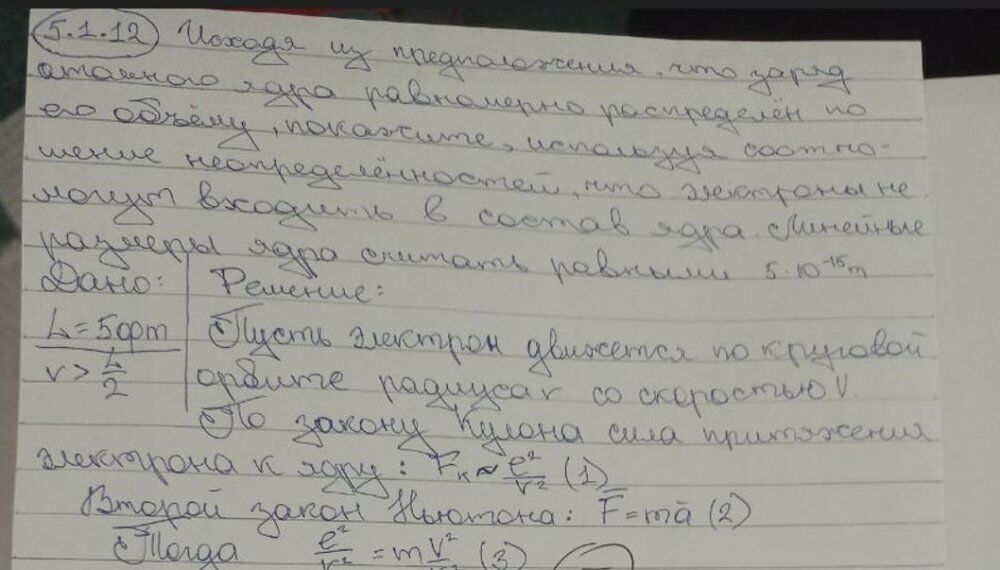 5.1.12 Исходя из предположения, что заряд
атомного ядра равномерно распределён по
его объёму, покажите, используя соотно-
шение неопределённостей, что электроны не
могут входить в состав ядра. Линейные
размеры ядра считать равными 5·10⁻¹⁵m
Дано: Решение:
L = 5фm Пусть электрон движется по круговой
r > L/2 орбите радиуса r со скоростью V.
По закону Кулона сила притяжения
электрона к ядру: Fₖ ~ e²/r² (1)
Второй закон Ньютона: F̄ = mā (2)
Тогда e²/r² = m V²/ (3)